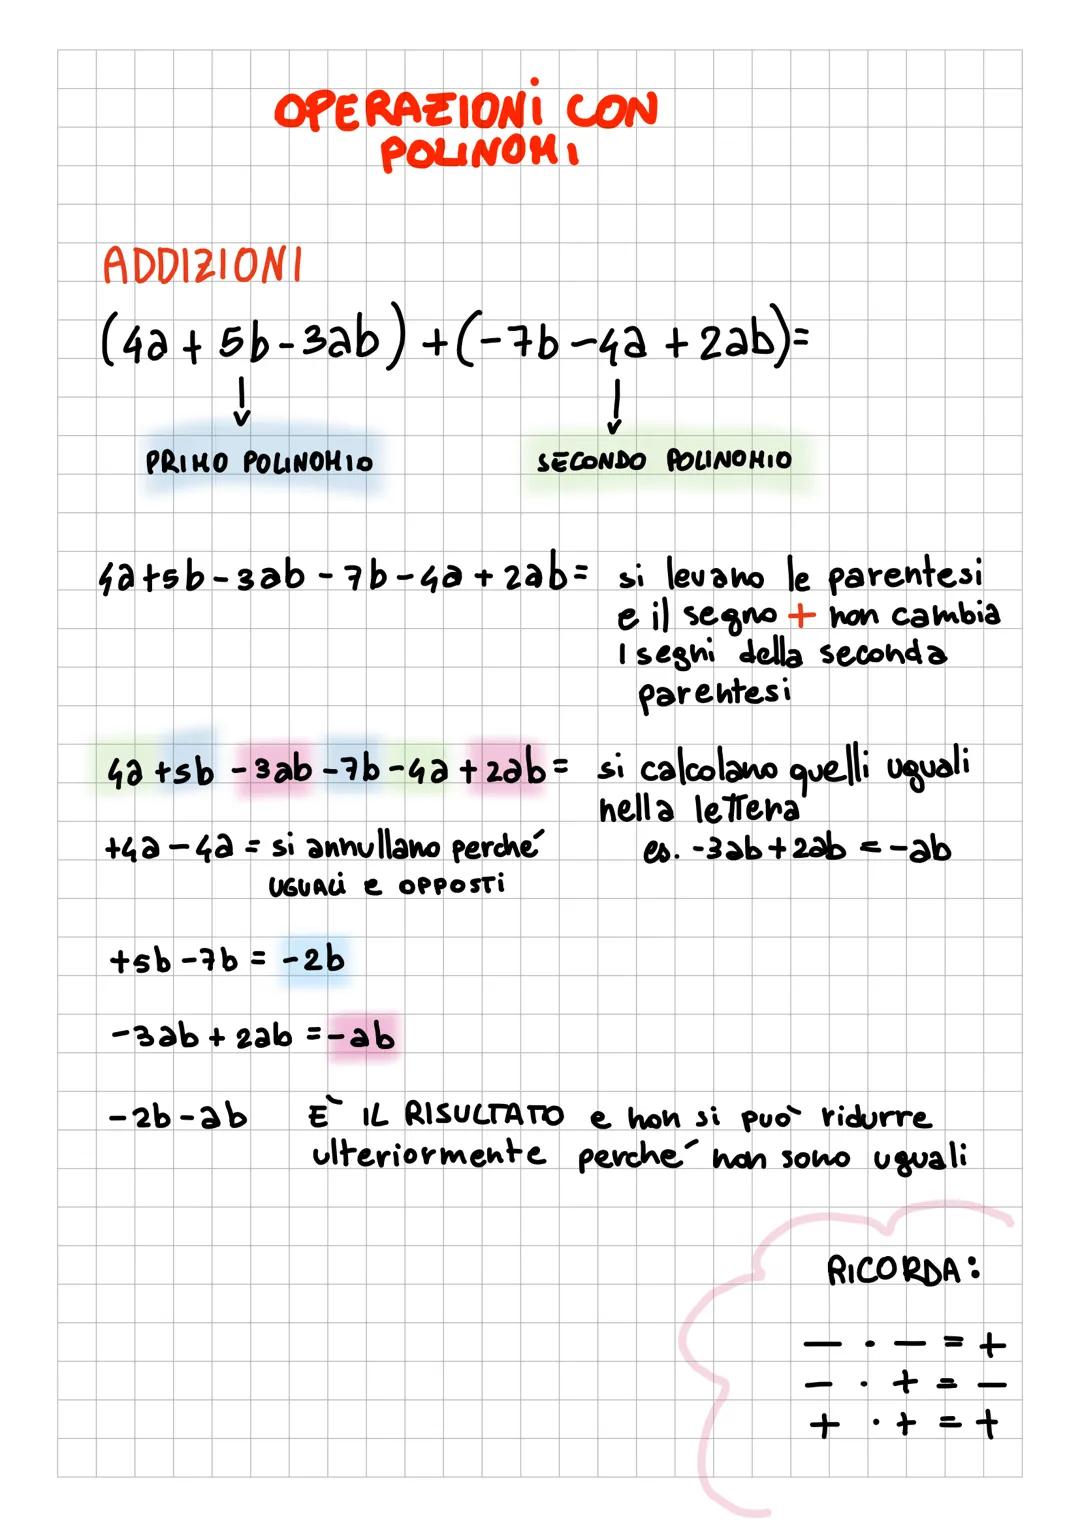 OPERAZIONI CON
POLINOMI
ADDIZIONI
(4a + 5b - 3ab) + (-7b - 4a + 2ab) =
↓ ↓
PRIMO POLINOMIO SECONDO POLINOMIO
4a + 5b - 3ab - 7b - 4a + 2ab = si levano le parentesi
e il segno + non cambia
I segni della seconda
parentesi
4a + 5b - 3ab - 7b - 4a + 2ab = si calcolano quelli uguali
nella lettera
+4a - 4a = si annullano perché es. -3ab + 2ab = -ab
UGUALI e OPPOSTI
+5b - 7b = -2b
-3ab + 2ab = -ab
-2b - ab E` IL RISULTATO e non si può ridurre
ulteriormente perché non sono uguali
RICORDA:
— · — = +
— · + = —
+ · + = +